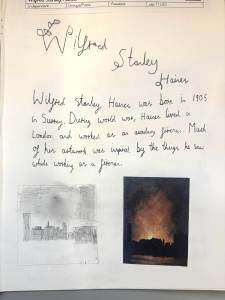 Wilfred
Stanley
Haines
Wilfred Stanley Haines was born in 1905
in Surrey. During world war, Haines lived in
London and worked as an auxiliary fireman. Much
of his artwork was inspired by the things he saw
while working as a fireman.